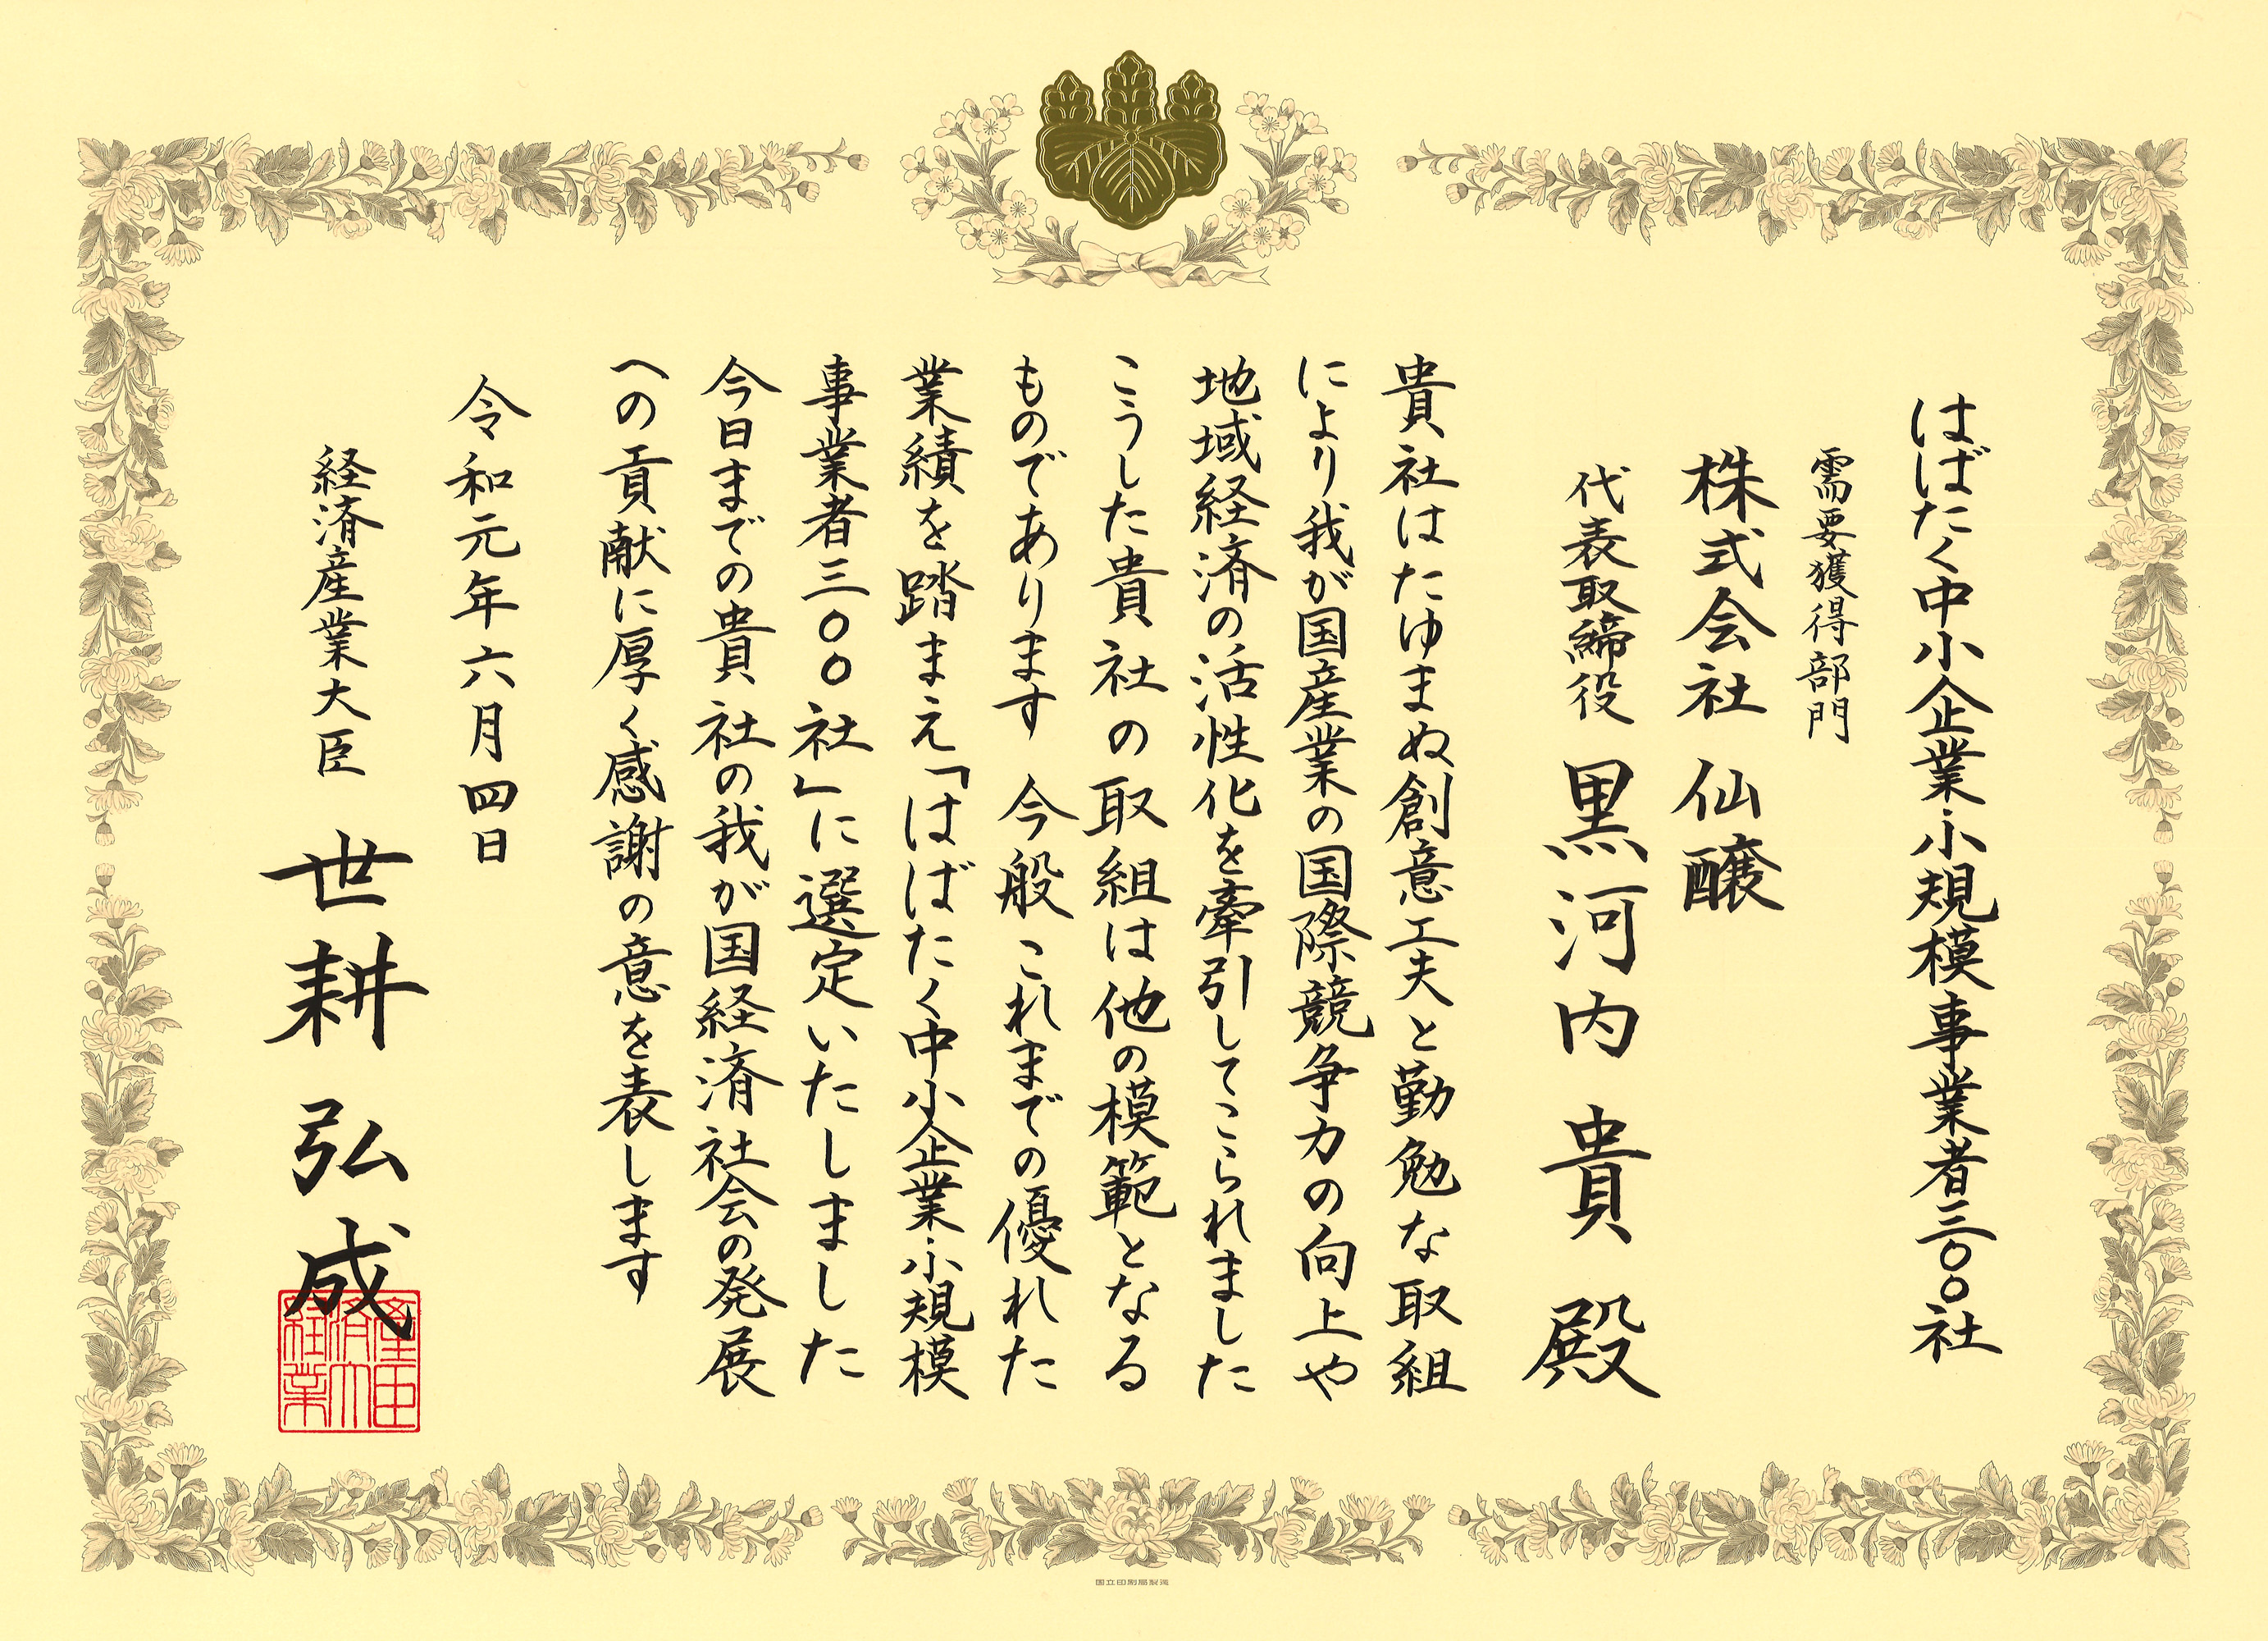 はばたく中小企業・小規模事業者三〇〇社
需要獲得部門
株式会社 仙醸
代表取締役 黒河内 貴 殿
貴社はたゆまぬ創意工夫と勤勉な取組
により我が国産業の国際競争力の向上や
地域経済の活性化を牽引してこられました
こうした貴社の取組は他の模範となる
ものであります 今般これまでの優れた
業績を踏まえ「はばたく中小企業・小規模
事業者三〇〇社」に選定いたしました
今日までの貴社の我が国経済社会の発展
への貢献に厚く感謝の意を表します
令和元年六月四日
経済産業大臣 世耕弘成
経済産業大臣
国立印刷局製造